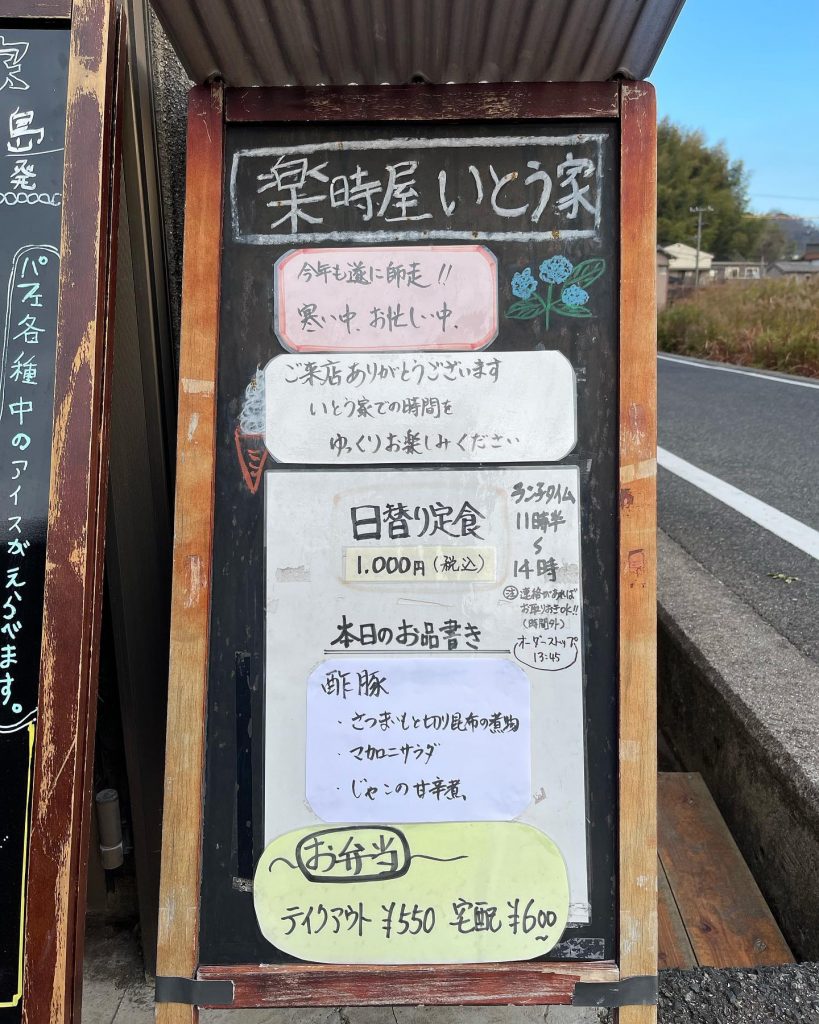 楽時屋 いとう家
今年も遂に師走!!
寒い中、お忙しい中、
ご来店ありがとうございます
いとう家での時間を
ゆっくりお楽しみください
日替り定食
1.000円(税込)
ランチタイム
11時半
~
14時
注 連絡があれば
お取りおきOK!!
(時間外)
オーダーストップ
13:45
本日のお品書き
酢豚
・さつまいもと切り昆布の煮物
・マカロニサラダ
・じゃこの甘辛煮
お弁当
テイクアウト ¥550 宅配 ¥600
島発
各種中のアイスがえらべます。